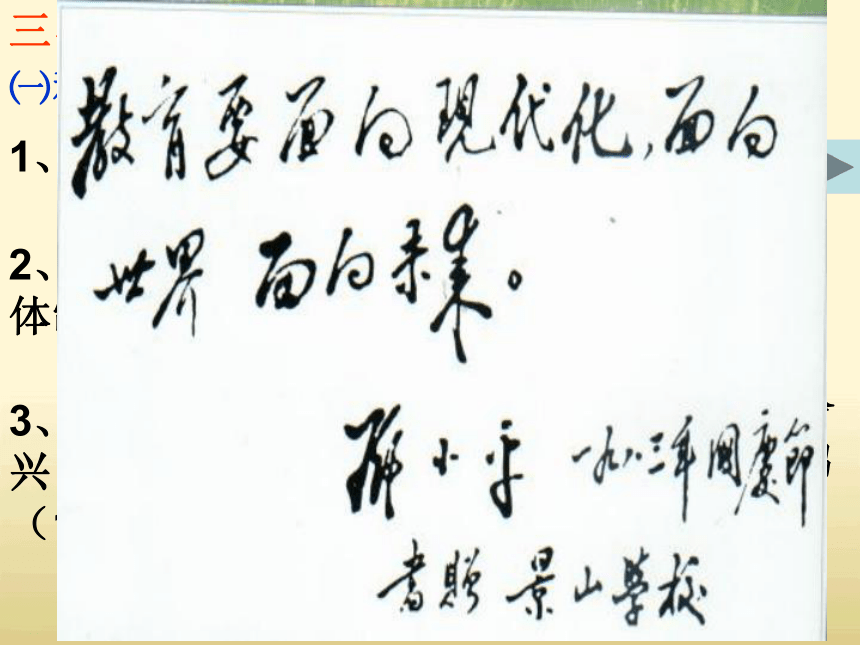 三、
㈠
1、
2、
体
3、
兴
（
教育要面向現代化,面向
世界 面向未来。
邓小平 一九八三年國慶節
書贈 景山學校